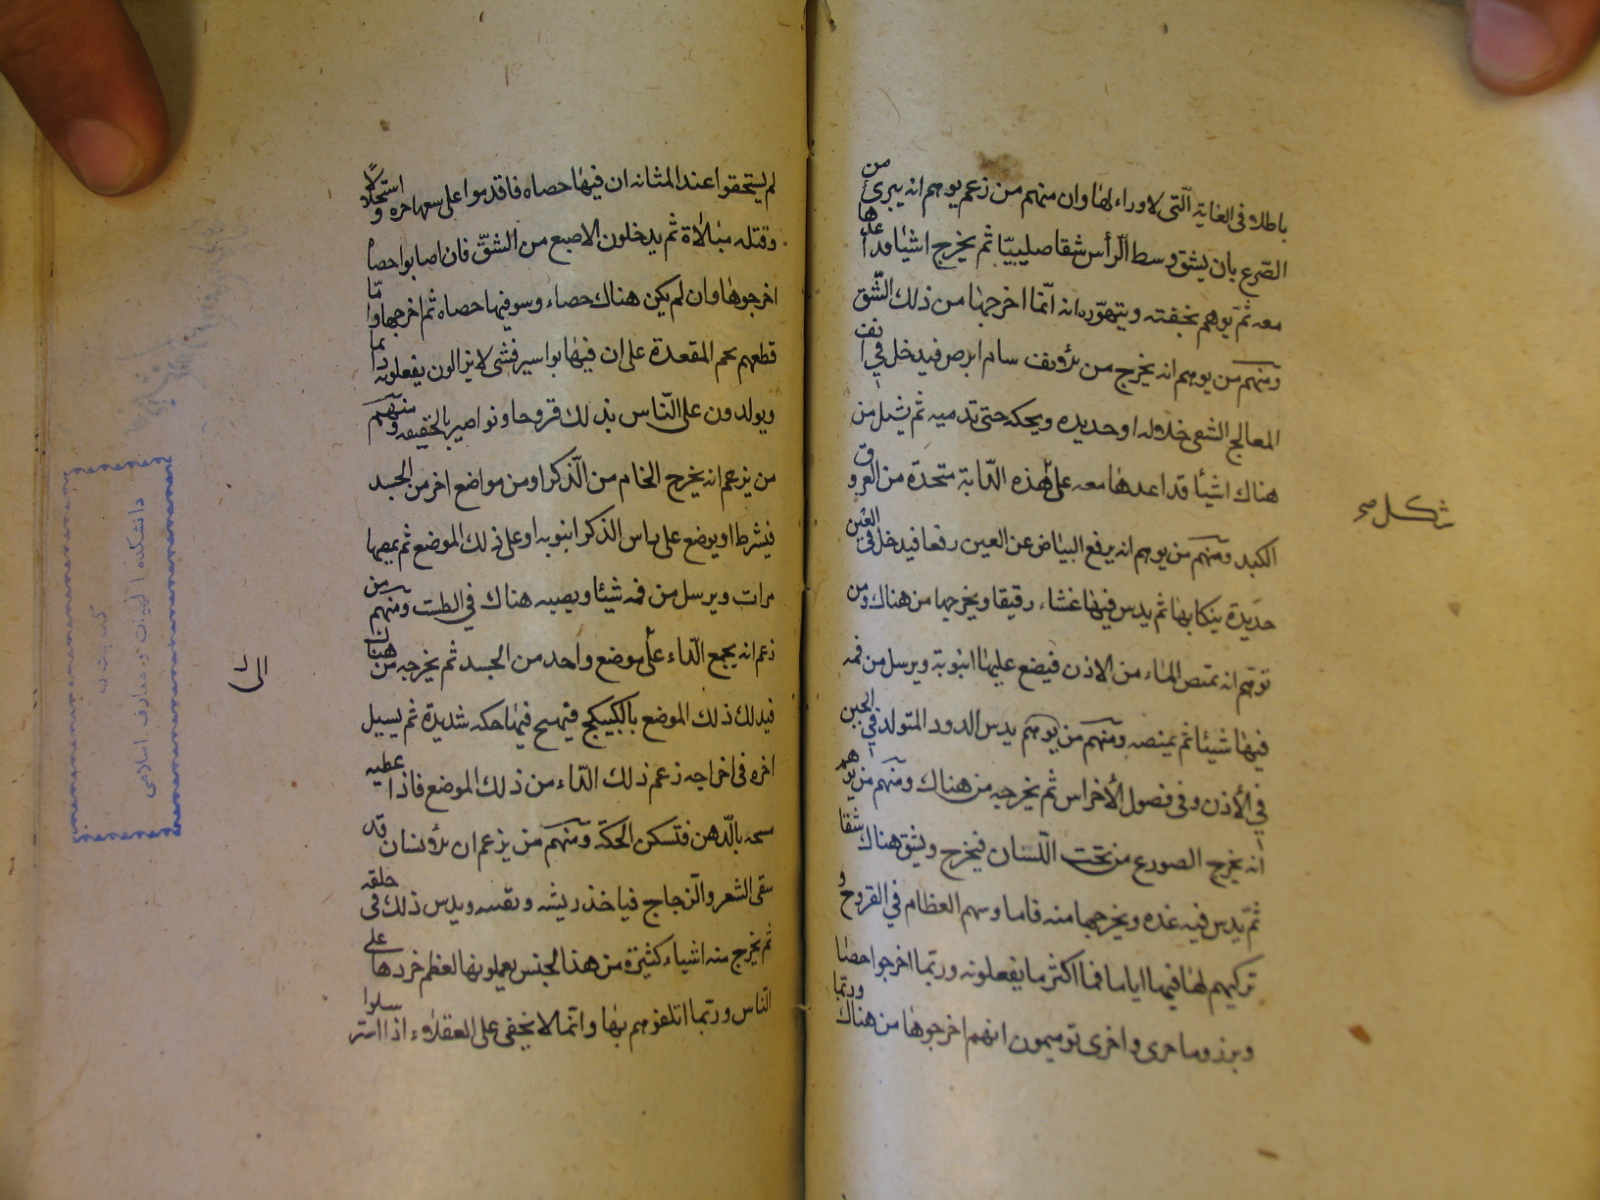 باطلا فى الغاية الّتى لا وراء لها وان منهم من زعم يوهم انه يبرئ من
الصّرع بان يشق وسط الرّأس شقا صليبيّا ثم يخرج اشياء قد اعدها
معه ثمّ يوهم بخفته و يتهوّره انه انّما اخرجها من ذلك الشّق
ومنهم من يوهم انه يخرج من سام ابرص فيدخل فى انف
المعالج الشقى خلاله او حديده ويحكه حتى تدميه ثم يشيل من
هناك اشياء قد اعدها معه على هذه الدّابة متحدة من العروق
الكبد ومنهم من يوهم انه يرفع البياض عن العين رفعا فيدخل فى العين
حديدة ينكا بها ثم يدس فيها غشاء رقيقا ويخرجها من هناك ومن
توهم انه يمتص الماء من الاذن فيضع عليها انبوبة ويرسل من فمه
فيها شيئا ثم يمتصه ومنهم من يوهم يدس الدود المتولد فى الجبن
فى الأذن وفى فصول الأخراس ثم يخرجه من هناك ومنهم من يوهم
انه يخرج من تحت اللّسان فيخرج ويشق هناك شقا
ثمّ يدس فيه غده ويخرجها منه فاما وسهم العظام فى القروح و
تركيهم لها فيها اياما فما اكثر ما يفعلونه وربّما اخرجوا حصا
اخرى توهيمون انهم اخرجوها من هناك وربّما
شكل صح
لم يستحقوا عند المثانه ان فيها حصاه فاقدموا على
وقتله مبالاة ثم يدخلون الاصبع من الشقّ فان اصابوا حصاه
اخرجوها وان لم يكن هناك حصاء وسو فيها حصاه ثم اخرجها وامّا
قطعهم لحم المقعدة على ان فيها بواسير فشى لا يزالون يفعلونه دايما
ويولدون على النّاس بذلك قروحا ونواصير بالحقيقه ومنهم
من يزعم انه يخرج الخام من الذّكر او من مواضع اخر من الجسد
فيشرط او يوضع على راس الذكر انبوبه او على ذلك الموضع ثم يمصها
مرات ويرسل من فمه شيئا ويصبه هناك فى الطست ومنهم من
زعم انه يجمع الدّاء على موضع واحد من الجسد ثم يخرجه من هناك
فيدلك ذلك الموضع بالكبيكج فيهيج فيها حكه شديدة ثم يسيل
اخره فى اخراجه زعم ذلك الدّاء من ذلك الموضع فاذا عطيه
مسحه بالدّهن فتسكن الحكّة ومنهم من يزعم ان قد
سقى الشعر والزّجاج فياخذ ريشه و ويدس ذلك فى حلقه
ثم يخرج منه اشياء كثيرة من هذا الجنس يعملو بها العظم على
النّاس وربّما اتلفوهم بها وانّما لا يخفى على العقلاء اذا
الى
دانشكده الهيات و معارف اسلامى